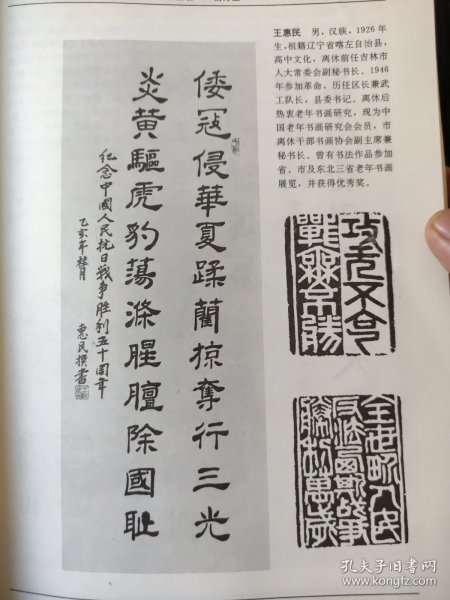 王惠民　男，汉族，1926年
生，祖籍辽宁省喀左自治县，
高中文化，离休前任吉林市
人大常委会副秘书长。1946
年参加革命，历任区长兼武
工队长，县委书记。离休后
热衷老年书画研究，现为中
国老年书画研究会会员，市
离休干部书画协会副主席兼
秘书长。曾有书法作品参加
省、市及东北三省老年书画
展览，并获得优秀奖。
倭寇侵華夏蹂藺掠奪行三光
炎黄驅虎豹蕩滌腥膻除國耻
纪念中國人民抗日戰争胜利五十周年
乙亥年桂月
惠民撰書
攻无不克
戰無不勝
全世界人民
反法西斯战争
勝利萬歲
孔夫子旧书网
www.kongfz.com